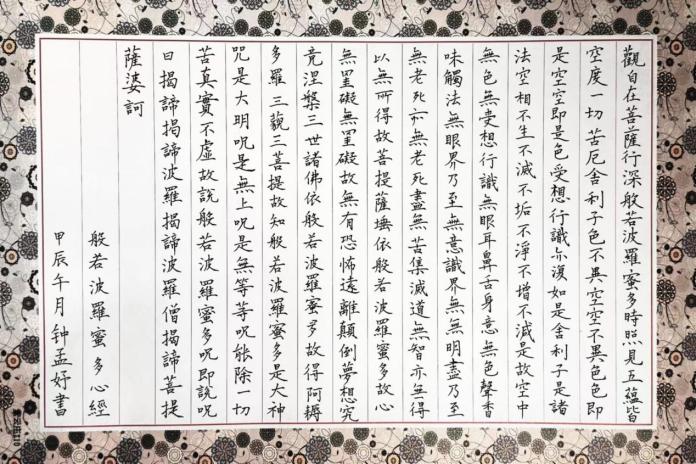 觀自在菩薩行深般若波羅蜜多時照見五蘊皆
空度一切苦厄舍利子色不異空空不異色色即
是空空即是色受想行識亦復如是舍利子是諸
法空相不生不滅不垢不淨不增不減是故空中
無色無受想行識無眼耳鼻舌身意無色聲香
味觸法無眼界乃至無意識界無無明盡乃至
無老死亦無老死盡無苦集滅道無智亦無得
以無所得故菩提薩埵依般若波羅蜜多故心
無罣礙無罣礙故無有恐怖遠離顛倒夢想究
竟涅槃三世諸佛依般若波羅蜜多故得阿耨
多羅三藐三菩提故知般若波羅蜜多是大神
咒是大明咒是無上咒是無等等咒能除一切
苦真實不虛故說般若波羅蜜多咒即説咒
曰揭諦揭諦波羅揭諦波羅僧揭諦菩提
薩婆訶
般若波羅蜜多心經
甲辰午月钟孟妤書